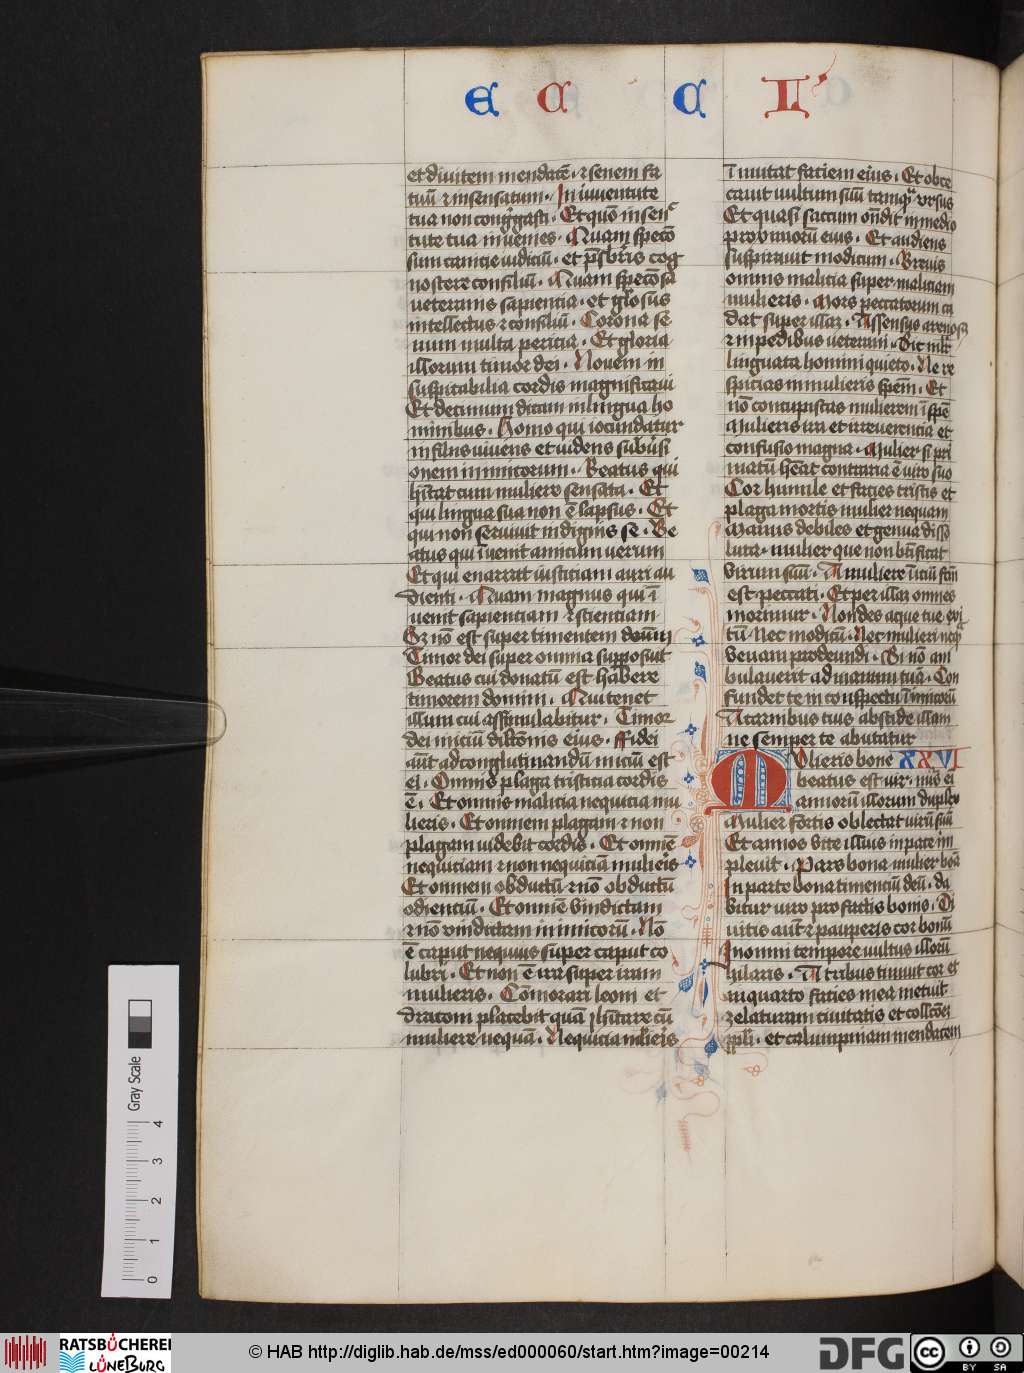 E C C L'
et divitem mendacē · ⁊ senem fa
tuū ⁊ insensatum · In iuventute
tua non congͥgasti · Et quō in senc̄
tute tua invenies · Quam speco͞
sum canicie iudiciū · et p̄sbr̄is cog
noscere consiliū · Quam speco͞sa
veteranis sapiencia · et glōsus
intellectus ⁊ consiliū · Corona se
num multa pericia · Et gloria
illorum timor dei · Novem in
suspicabilia cordis magnificavi
Et decimum dicam in lingua ho
minibus · Homo qui iocundatur
in filiis vivens et videns subv̄si
onem inimicorum · Beatus qui
hītat cum muliere sensata · Et
qui lingua sua non ē lapsus · Et
qui non servivit indignis se · Be
atus qui īvenit amicum verum
Et qui enarrat iusticiam auri au
dienti · Quam magnus qui ī
venit sapienciam ⁊ scienciam
Sȝ nō est super timentem dominū
Timor dei super omnia supposuit
Beatus cui donatū est habere
timorem domini · Qui tenet
illum cui assimulabitur · Timor
dei inicium dilc̄onis eius · ffidei
aūt adconglutinandū inicium est
ei · Omnis plaga tristicia cordis
ē · Et omnis malicia nequicia mu
lieris · Et omnem plagam ⁊ non
plagam videbit cordis · Et omnē
nequiciam ⁊ non nequiciā mulieīs
Et omnem obductū ⁊ nō obductū
odienciū · Et omnē vindictam
⁊ nō vindictam inimicorū · Nō
ē caput nequius super caput co
lubri · Et non ē ira super iram
mulieris · Cōmorari leoni et
draconi placebit quā hītare cū
muliere nequā · Nequicia mulieris
īmutat faciem eius · Et obce
cavit vultum suū tamqͣ ursus
Et quasi saccum on̄dit in medio
proximorū eius · Et audiens
suspiravit modicum · Brevis
omnis malicia super maliciam
mulieris · Mors peccatorum ca
dat super illaȝ · Assensus arenosꝫ
⁊ in pedibus veterani · Sic mulr̄
linguata homini quieto · Ne re
spicias in mulieris spēm · Et
nō concupiscas mulierem ī spē
Mulieris ira et irreverencia et
confusio magna · Mulier si pri
matū hēat contraria ē viro suo
Cor humile et facies tristis et
plaga mortis mulier nequam
Manus debiles et genua disso
luta · mulier que non btīficat
virum suū · A muliere īiciū fcm̄
est peccati · Et per illaȝ omnes
morimur · Non des aque tue exi
tū · Nec modicū · Nec mulieri neqͣ
veniam prodeundi · Si nō am
bulaverit ad manum tuā · Con
fundet te in conspectu īimicorū
A carnibus tuis abscide illam
ne semper te abutatur
MVlieris bone XXVI
beatus est vir · nūs ei
annorū illorum duplex
Mulier fortis oblectat virū suū
Et annos vite illius in pace im
plevit · Pars bona mulier boā
In parte bona timenciū deū · da
bitur viro pro factis bonis · Di
vitis aūt ⁊ pauperis cor bonū
In omni tempore vultus illorū
hylaris · A tribus timuit cor et
in quarto facies mea metuit
zelaturam civitatis et collcōeȝ
ppli · et calumpniam mendacem
Gray Scale
0 1 2 3 4
RATSBÜCHEREI
LÜNEBURG
© HAB http://diglib.hab.de/mss/ed000060/start.htm?image=00214
DFG
cc
BY SA